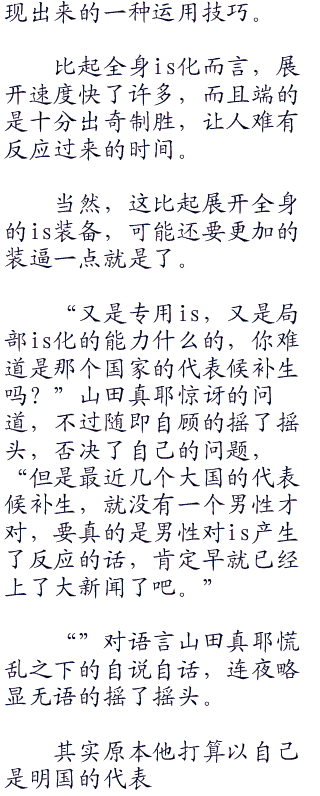 现出来的一种运用技巧。
比起全身is化而言，展
开速度快了许多，而且端的
是十分出奇制胜，让人难有
反应过来的时间。
当然，这比起展开全身
的is装备，可能还要更加的
装逼一点就是了。
“又是专用is，又是局
部is化的能力什么的，你难
道是那个国家的代表候补生
吗？”山田真耶惊讶的问
道，不过随即自顾的摇了摇
头，否决了自己的问题，
“但是最近几个大国的代表
候补生，就没有一个男性才
对，要真的是男性对is产生
了反应的话，肯定早就已经
上了大新闻了吧。”
“”对语言山田真耶慌
乱之下的自说自话，连夜略
显无语的摇了摇头。
其实原本他打算以自己
是明国的代表